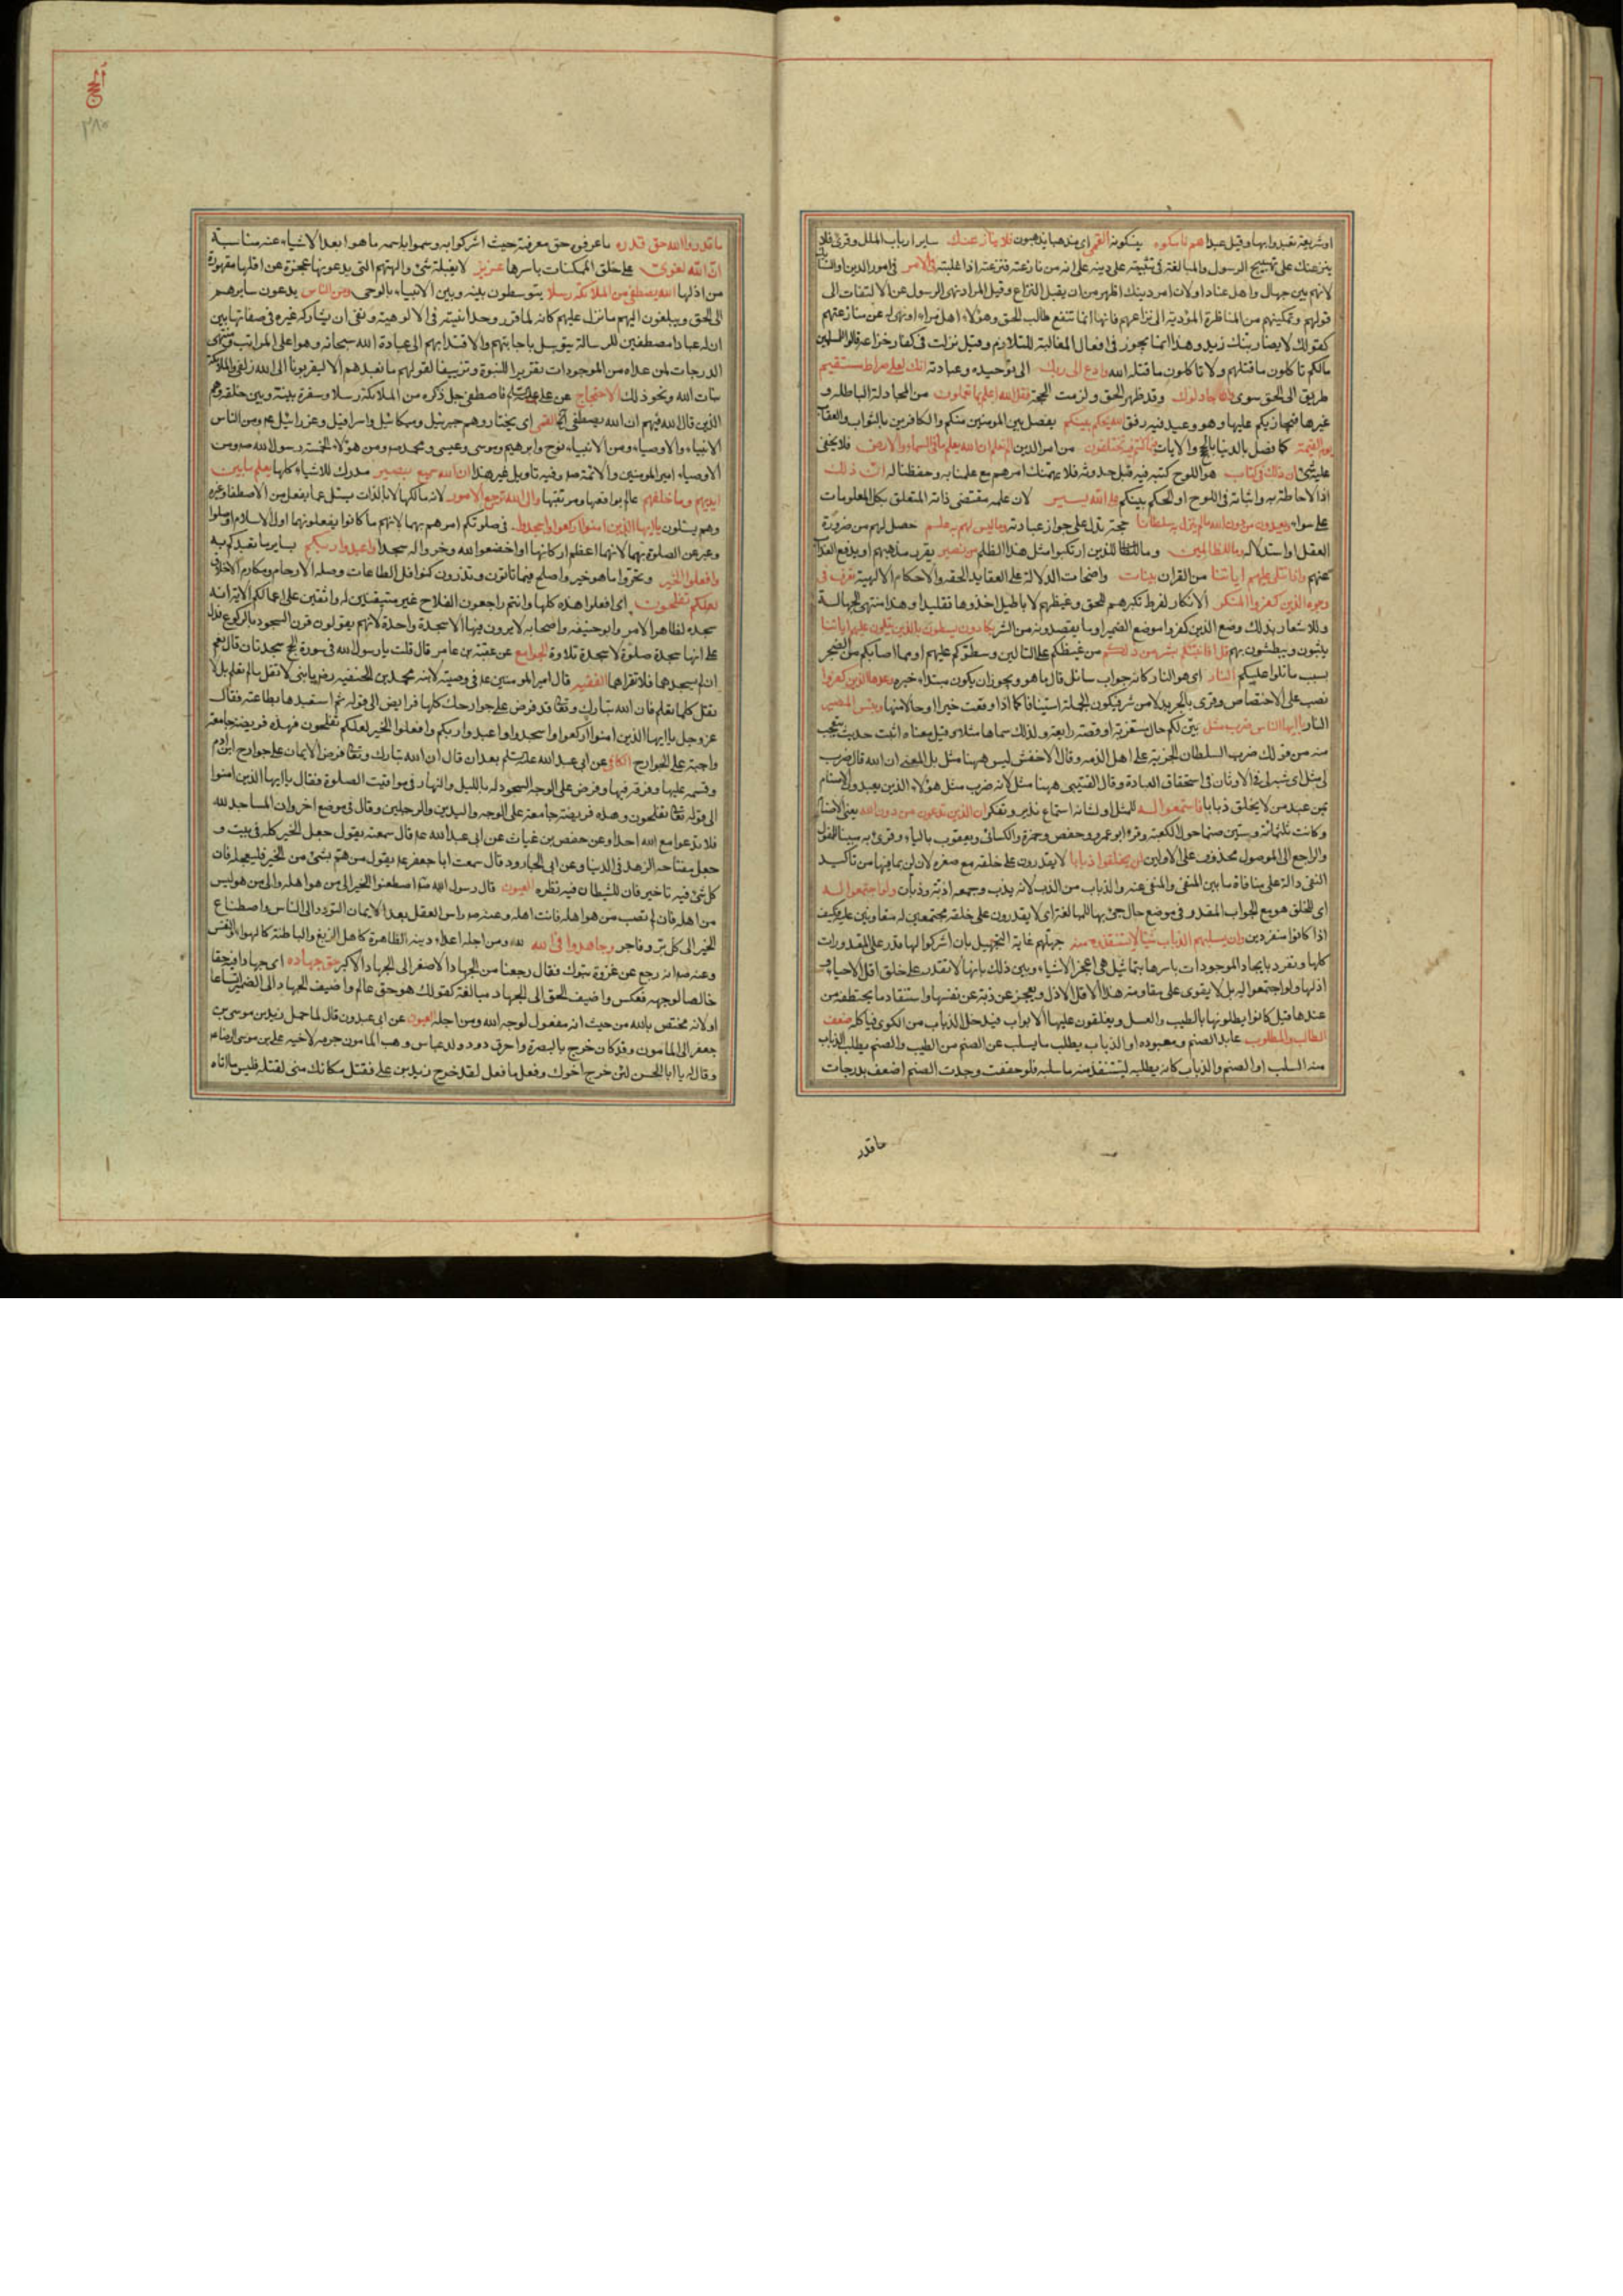 او شريعة تعبدوا بها وقيل عيدا هم ناسكوه ينسكونه القمى اى مذهبا يذهبون فلا ينازعنك ساير ارباب الملل وقرئ فلا
ينزعنك على تهييج الرسول والمبالغة فى تثبيته على دينه على انه من نازعته فنزعته اذا غلبته فى الامر فى امور الدين او النسك
لانهم بين جهال واهل عناد او لان امر دينك اظهر من ان يقبل النزاع وقيل المراد نهى الرسول عن الالتفات الى
قولهم وتمكينهم من المناظرة المؤدية الى نزاعهم فانها انما تنفع طالب الحق وهؤلاء اهل مراء او نهى له عن منازعتهم
كقولك لا يضاربنك زيد وهذا انما يجوز فى افعال المغالبة للتلازم وقيل نزلت فى كفار خزاعة قالوا للمسلمين
مالكم تاكلون ما قتلتم ولا تاكلون ما قتله الله وادع الى ربك الى توحيده وعبادته انك لعلى هدى مستقيم
طريق الى الحق سوى وان جادلوك وقد ظهر الحق ولزمت الحجة فقل الله اعلم بما تعملون من المجادلة الباطلة و
غيرها فيجازيكم عليها وهو وعيد فيه رفق الله يحكم بينكم يفصل بين المومنين منكم والكافرين بالثواب والعقاب
يوم القيمة كما فصل بالدنيا بالحجج والايات فيما كنتم فيه تختلفون من امر الدين الم تعلم ان الله يعلم ما فى السماء والارض فلا يخفى
عليه شئ ان ذلك فى كتاب هو اللوح كتبه فيه قبل حدوثه فلا يهمنك امرهم مع علمنا به وحفظنا له ان ذلك
اذ الاحاطة به واثباته فى اللوح او الحكم بينكم على الله يسير لان علمه مقتضى ذاته المتعلق بكل المعلومات
على سواء ويعبدون من دون الله ما لم ينزل به سلطانا حجة تدل على جواز عبادته وما ليس لهم به علم حصل لهم من ضرورة
العقل او استدلاله وما للظالمين وما للذين ارتكبوا مثل هذا الظلم من نصير يقرر مذهبهم او يدفع العذاب
عنهم واذا تتلى عليهم اياتنا من القران بينات واضحات الدلالة على العقايد الحقه والاحكام الالهية تعرف فى
وجوه الذين كفروا المنكر الانكار لفرط تكبرهم للحق وغيظهم لاباطيل اخذوها تقليدا وهذا منتهى الجهالة
وللاشعار بذلك وضع الذين كفروا موضع الضمير او ما يقصدونه من الشر يكادون يسطون بالذين يتلون عليهم اياتنا
يثبون ويبطشون بهم قل افانبئكم بشر من ذلكم من غيظكم على التالين وسطوتكم عليهم او مما اصابكم من الضجر
بسبب ما تلوا عليكم النار اى هو النار كانه جواب سائل قال ما هو ويجوز ان يكون مبتداء خبره وعدها الله الذين كفروا
نصب على الاختصاص وقرئ بالجر بدلا من شر فيكون الجملة استينافا كما اذا وقعت خبرا او حالا منها وبئس المصير
النار يا ايها الناس ضرب مثل بين لكم حال مستغربة او قصة رايعة ولذلك سماها مثلا وقيل معناه اثبت حديث يتعجب
منه من قولك ضرب السلطان الجزية على اهل الذمه وقال الاخفش ليس ههنا مثل بل المعنى ان الله قال ضرب
لى مثل اى شبه لى فى الاوثان فى استحقاق العبادة وقال القتيبى ههنا مثل لانه ضرب مثل هؤلاء الذين يعبدون الاصنام
بمن عبد من لا يخلق ذبابا فاستمعوا له للمثل او لشانه استماع تدبر وتفكر ان الذين تدعون من دون الله يعنى الاصنام
وكانت ثلثمائة وستين صنما حول الكعبة وقرء ابو عمرو وحفص وحمزة والكسائى ويعقوب بالياء وقرئ به مبينا للمفعول
والراجع الى الموصول محذوف على الاولين لن يخلقوا ذبابا لا يقدرون على خلقه مع صغره لان لن بما فيها من تاكيد
النفى دالة على منافاة ما بين المنفى والمنفى عنه والذباب من الذب لانه يذب وجمعه اذبة وذبان ولو اجتمعوا له
اى للخلق هو مع الجواب المقدر فى موضع حال جئ بها للمبالغة اى لا يقدرون على خلقه مجتمعين له متعاونين عليه فكيف
اذا كانوا منفردين وان يسلبهم الذباب شيئا لا يستنقذوه منه جهلهم غاية التجهيل بان اشركوا الها قدر على المقدورات
كلها وتفرد بايجاد الموجودات باسرها بتماثيل هى اعجز الاشياء وبين ذلك بانها لا تقدر على خلق اقل الاحياء و
اذلها ولو اجتمعوا له بل لا يقوى على مقاومة هذا الاقل الاذل ويعجز عن ذبه عن نفسها واستنقاذ ما يختطفه من
عندها قيل كانوا يطلونها بالطيب والعسل ويغلقون عليها الابواب فيدخل الذباب من الكوى فياكله ضعف
الطالب والمطلوب عابد الصنم ومعبوده او الذباب يطلب ما يسلب عن الصنم من الطيب والصنم يطلب الذباب
منه السلب او الصنم والذباب كانه يطلبه ليستنقذ منه ما سلبه فلو حققت وجدت الصنم اضعف بدرجات
ما قدر
٣٨٠
ما قدروا الله حق قدره ما عرفوه حق معرفته حيث اشركوا به وسموا باسمه ما هو ابعد الاشياء عنه مناسبة
ان الله لقوى على خلق الممكنات باسرها عزيز لا يغلبه شئ والهتهم التى يدعونها عجزة عن اقلها مقهورة
من اذلها الله يصطفى من الملائكة رسلا يتوسطون بينه وبين الانبياء بالوحى ومن الناس يدعون سايرهم
الى الحق ويبلغون اليهم ما نزل عليهم كانه لما قرر وحدانيته فى الالوهية ونفى ان يشاركه غيره فى صفاتها بين
ان له عبادا مصطفين للرسالة يتوسل باجابتهم والاقتداء بهم الى عبادة الله سبحانه وهو اعلى المراتب ومنتهى
الدرجات لمن عداه من الموجودات تقريرا للنبوة وتزييفا لقولهم ما نعبدهم الا ليقربونا الى الله زلفى والملائكة
بنات الله ونحو ذلك الاحتجاج عن على عليه السلم فاصطفى جل ذكره من الملائكة رسلا وسفرة بينه وبين خلقه وهم
الذين قال الله فيهم ان الله يصطفى القمى اى يختار وهم جبرئيل وميكائيل واسرافيل وعزرائيل ومن الناس
الانبياء والاوصياء ومن الانبياء نوح وابرهيم وموسى وعيسى ومحمد ص ومن هؤلاء الخمسة رسول الله ص ومن
الاوصياء امير المومنين والائمة ع وفيه تاويل غير هذا ان الله سميع بصير مدرك للاشياء كلها يعلم ما بين
ايديهم وما خلفهم عالم بواقعها ومترقبها والى الله ترجع الامور لانه مالكها لانه بالذات لا يسئل عما يفعل من الاصطفاء وغيره
وهم يسئلون يا ايها الذين امنوا اركعوا واسجدوا فى صلوتكم امرهم بهما لانهم ما كانوا يفعلونهما اول الاسلام او صلوا
وعبر عن الصلوة بهما لانهما اعظم اركانها او اخضعوا لله وخروا له سجدا واعبدوا ربكم بساير ما تعبدكم به
وافعلوا الخير وتحروا ما هو خير واصلح فيما تاتون وتذرون كنوافل الطاعات وصلة الارحام ومكارم الاخلاق
لعلكم تفلحون اى افعلوا هذه كلها وانتم راجعون الفلاح غير متيقنين له واثقين على اعمالكم الاية انه
سجدة لظاهر الامر وابو حنيفه واصحابه لا يرون فيها الا سجدة واحدة لانهم يقولون قرن السجود بالركوع فدل
على انها سجدة صلوة لا سجدة تلاوة الجوامع عن عقبة بن عامر قال قلت يا رسول الله فى سورة الحج سجدتان قال نعم
ان لم تسجدهما فلا تقراهما الفقيه قال امير المومنين ع فى وصيته لابنه محمد بن الحنفيه رض يا بنى لا تقل ما لا تعلم بل لا
تقل كلما تعلم فان الله تبارك وتعا قد فرض على جوارحك كلها فرايض الى قوله ثم استعبدها بطاعته فقال
عز وجل يا ايها الذين امنوا اركعوا واسجدوا واعبدوا ربكم وافعلوا الخير لعلكم تفلحون فهذه فريضة جامعة
واجبة على الجوارح الكافى عن ابى عبد الله عليه السلم بعد ان قال ان الله تبارك وتعا فرض الايمان على جوارح ابن ادم
وقسمه عليها وفرقه فيها وفرض على الوجه السجود له بالليل والنهار فى مواقيت الصلوة فقال يا ايها الذين امنوا
الى قوله تعا تفلحون وهذه فريضة جامعة على الوجه واليدين والرجلين وقال فى موضع اخر وان المساجد لله
فلا تدعوا مع الله احدا وعن حفص بن غياث عن ابى عبد الله ع قال سمعته يقول جعل الخير كله فى بيت و
جعل مفتاحه الزهد فى الدنيا وعن ابى الجارود قال سمعت ابا جعفر ع يقول من هم بشئ من الخير فليعجله فان
كل شئ فيه تاخير فان للشيطان فيه نظرة العيون قال رسول الله ص اصطنعوا الخير الى من هو اهله والى من هو ليس
من اهله فان لم تصب من هو اهله فانت اهله وعنه ص راس العقل بعد الايمان التودد الى الناس واصطناع
الخير الى كل بر وفاجر وجاهدوا فى الله لله ومن اجله اعداء دينه الظاهرة كاهل الزيغ والباطنة كالهوا والنفس
وعنه ص انه رجع عن غزوة تبوك فقال رجعنا من الجهاد الاصغر الى الجهاد الاكبر حق جهاده اى جهادا فيه حقا
خالصا لوجهه فعكس واضيف الحق الى الجهاد مبالغة كقولك هو حق عالم واضيف الجهاد الى الضمير اتساعا
او لانه مختص بالله من حيث انه مفعول لوجه الله ومن اجله العيون عن ابى عبدون قال لما حمل زيد بن موسى بن
جعفر الى المامون وقد كان خرج بالبصرة واحرق دور ولد عباس وهب المامون جرمه لاخيه على بن موسى الرضا ع
وقال له يا ابا الحسن لئن خرج اخوك وفعل ما فعل لقد خرج زيد بن على فقتل ولولا مكانك منى لقتلته فليس ما اتاه